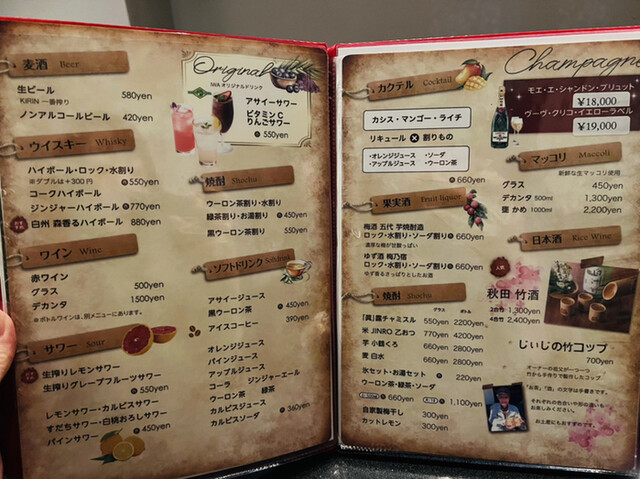 麦酒 Beer
生ビール
KIRIN 一番搾り
580yen
ノンアルコールビール 420yen
ウイスキー Whisky
ハイボール・ロック・水割り
※ダブルは+300円
各550yen
コークハイボール
ジンジャーハイボール 各770yen
白州 森香るハイボール 880yen
ワイン Wine
赤ワイン
グラス 500yen
デカンタ 1500yen
※ボトルワインは、別メニューにあります。
サワー Sour
生搾りレモンサワー
生搾りグレープフルーツサワー
各550yen
レモンサワー・カルピスサワー
すだちサワー・白桃おろしサワー
パインサワー 各450yen
Original
IWA オリジナルドリンク
アサイーサワー
ビタミンC
りんごサワー
各550yen
焼酎 Shochu
ウーロン茶割り・水割り
緑茶割り・お湯割り 各450yen
黒ウーロン茶割り 550yen
ソフトドリンク Softdrink
アサイージュース
黒ウーロン茶 各450yen
アイスコーヒー 390yen
オレンジジュース
パインジュース
アップルジュース
コーラ ジンジャーエール
ウーロン茶 緑茶
カルピスジュース
カルピスソーダ 各360yen
カクテル Cocktail
カシス・マンゴー・ライチ
リキュール × 割りもの
・オレンジジュース ・ソーダ
・アップルジュース ・ウーロン茶
各660yen
果実酒 Fruit liquor
梅酒 五代 芋焼酎造
ロック・水割り・ソーダ割り 各660yen
濃厚な梅が甘酸っぱい
ゆず酒 梅乃宿
ロック・水割り・ソーダ割り 各660yen
ゆず香るさっぱりとしたお酒
焼酎 Shochu
グラス ボトル
【眞】露チャミスル 550yen 2200yen
米 JINRO 乙おつ 770yen 4200yen
芋 小鶴くろ 660yen 2800yen
麦 白水 660yen 2800yen
氷セット・お湯セット 各220yen
ウーロン茶・緑茶・ソーダ
各660yen 各1,100yen
自家製梅干し 300yen
カットレモン 300yen
Champagne
モエ・エ・シャンドン・ブリュット
¥18,000
ヴーヴ・クリコ・イエローラベル
¥19,000
マッコリ Maccoli
新鮮な生マッコリ使用
グラス 450yen
デカンタ 500ml 1,300yen
甕 かめ 1000ml 2,200yen
日本酒 Rice Wine
人気
秋田 竹酒
2合竹 1,300yen
4合竹 2,400yen
じぃじの竹コップ
700yen
オーナーの祖父が一つ一つ
竹から手作りで製作したコップ
「お茶」「酒」の文字は手書きです。
それぞれの色合いや形の違いも
お楽しみください。
お土産にもおすすめです。